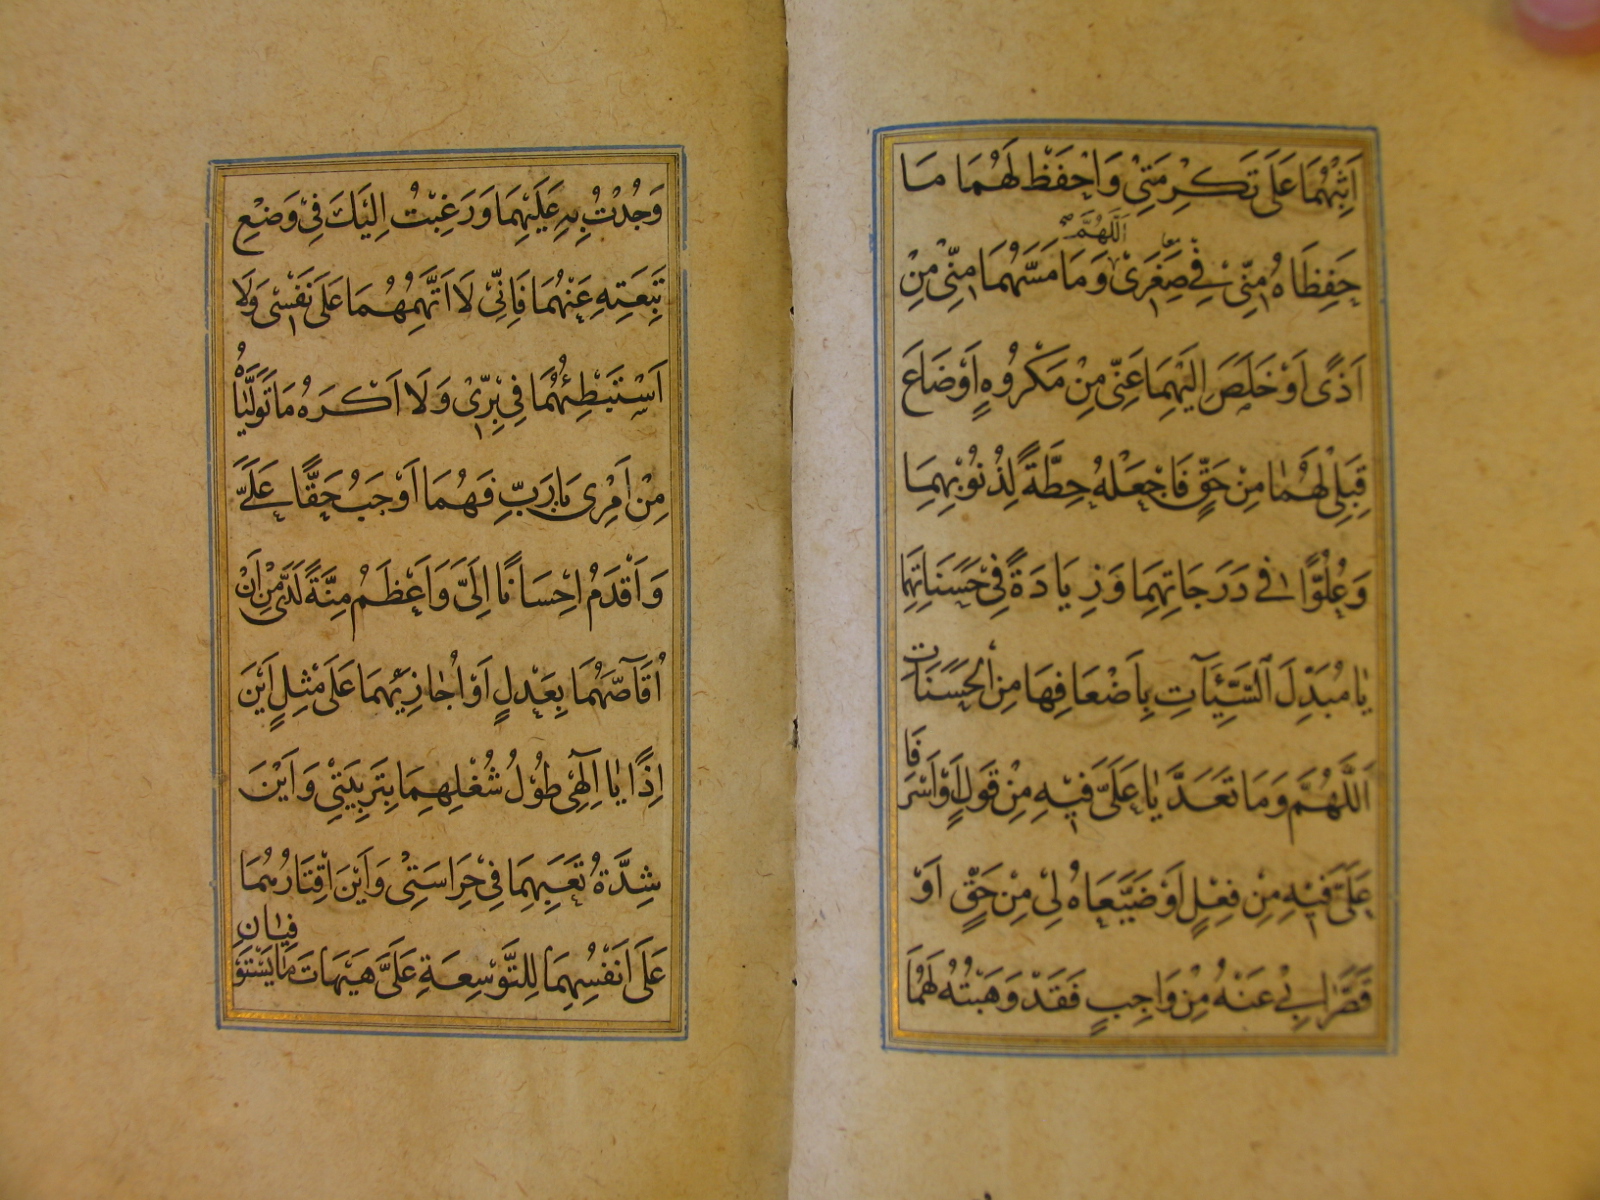 اَثِبْهُمَا عَلَى تَكْرِمَتِيْ وَاحْفَظْ لَهُمَا مَا
اَللّٰهُمَّ
حَفِظَاهُ مِنّىْ فِي صِغَرىْ وَمَا مَسَّهُمَا مِنّىْ مِنْ
اَذًى اَوْ خَلَصَ اِلَيْهِمَا عَنّىْ مِنْ مَكْرُوهٍ اَوْ ضَاعَ
قِبَلِىْ لَهُمَا مِنْ حَقٍّ فَاجْعَلْهُ حِطَّةً لِذُنُوْبِهِمَا
وَعُلُوًّا فِي دَرَجَاتِهِمَا وَزِيَادَةً فِيْ حَسَنَاتِهِمَا
يَا مُبَدِّلَ السَّيِّئَآتِ بِاَضْعَافِهَا مِنَ الْحَسَنَاتِ
اَللّٰهُمَّ وَمَا تَعَدَّيَا عَلَيَّ فِيْهِ مِنْ قَوْلٍ اَوْ اَسْرَفَا
عَلَيَّ فِيْهِ مِنْ فِعْلٍ اَوْ ضَيَّعَاهُ لِيْ مِنْ حَقٍّ اَوْ
قَصَّرَا بِيْ عَنْهُ مِنْ وَاجِبٍ فَقَدْ وَهَبْتُهُ لَهُمَا
وَجُدْتُ بِهِ عَلَيْهِمَا وَرَغِبْتُ اِلَيْكَ فِيْ وَضْعِ
تَبِعَتِهِ عَنْهُمَا فَاِنّيْ لَا اَتَّهِمُهُمَا عَلَى نَفْسىْ وَلَا
اَسْتَبْطِئُهُمَا فِيْ بِرّىْ وَلَا اَكْرَهُ مَا تَوَلَّيَاهُ
مِنْ اَمْرِىْ يَا رَبِّ فَهُمَا اَوْجَبُ حَقًّا عَلَيَّ
وَاَقْدَمُ اِحْسَانًا اِلَيَّ وَاَعْظَمُ مِنَّةً لَدَيَّ مِنْ اَنْ
اُقَآصَّهُمَا بِعَدْلٍ اَوْ اُجَازِيَهُمَا عَلَى مِثْلٍ اَيْنَ
اِذًا يَا اِلٰهِيْ طُوْلُ شُغْلِهِمَا بِتَرْبِيَتِيْ وَاَيْنَ
شِدَّةُ تَعَبِهِمَا فِيْ حِرَاسَتِيْ وَاَيْنَ اقْتَارُهُمَا
عَلَى اَنْفُسِهِمَا لِلتَّوْسِعَةِ عَلَيَّ هَيْهَاتَ مَا يَسْتَوْفِيَانِ